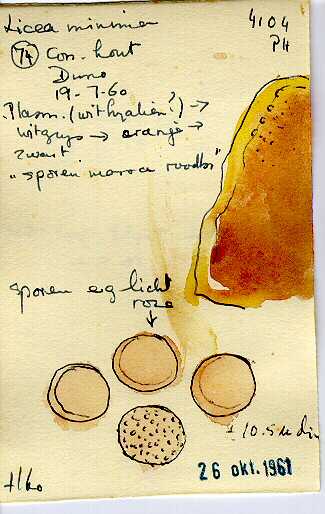 Licea minima
4104
PH
74 Con. hout
Duno
19-7-60
Plasm. (wit hyalien?) →
witgrijs → oranje →
zwart
"sporen massa roodbr"
sporen erg licht
roze
± 10.5 µ diam
26 okt. 1961